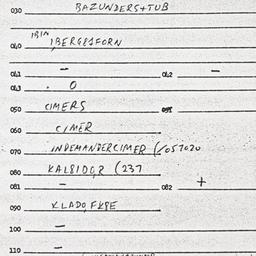 030 BAZUNDERS+TUB
IBIN
040 IBERG81FORN
041 - 042 -
043 . 0
050 CIMERS
060 CIMER
070 INDEMANDERCIMER (/057020
080 KAL8100,8 (237
081 - 082 +
090 KLADO,FKSE
100 -
110 -